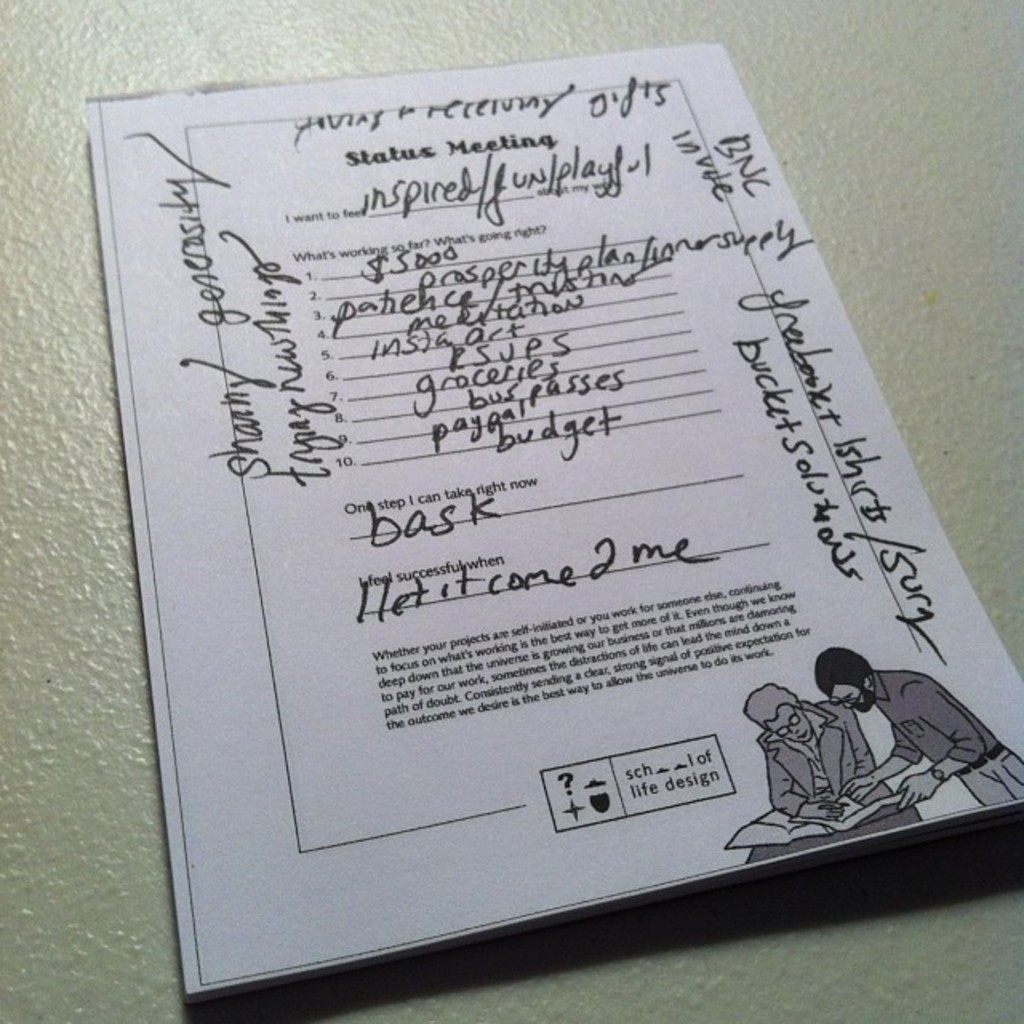 giving + receiving gifts
Status Meeting
I want to feel inspired/fun/playful about my
What's working so far? What's going right?
1. $5000
2. prosperity plan/inner supply
3. patience/trusting
4. meditation
5. insta art
6. RSVPs
7. groceries
8. bus passes
9. paypal
10. budget
One step I can take right now
bask
I feel successful when
I let it come 2 me
Whether your projects are self-initiated or you work for someone else, continuing
to focus on what's working is the best way to get more of it. Even though we know
deep down that the universe is growing our business or that millions are clamoring
to pay for our work, sometimes the distractions of life can lead the mind down a
path of doubt. Consistently sending a clear, strong signal of positive expectation for
the outcome we desire is the best way to allow the universe to do its work.
? sch l of
life design
sharing generosity
trying new things
BNC
invite
freebooksy tshirts/
bucket solutions